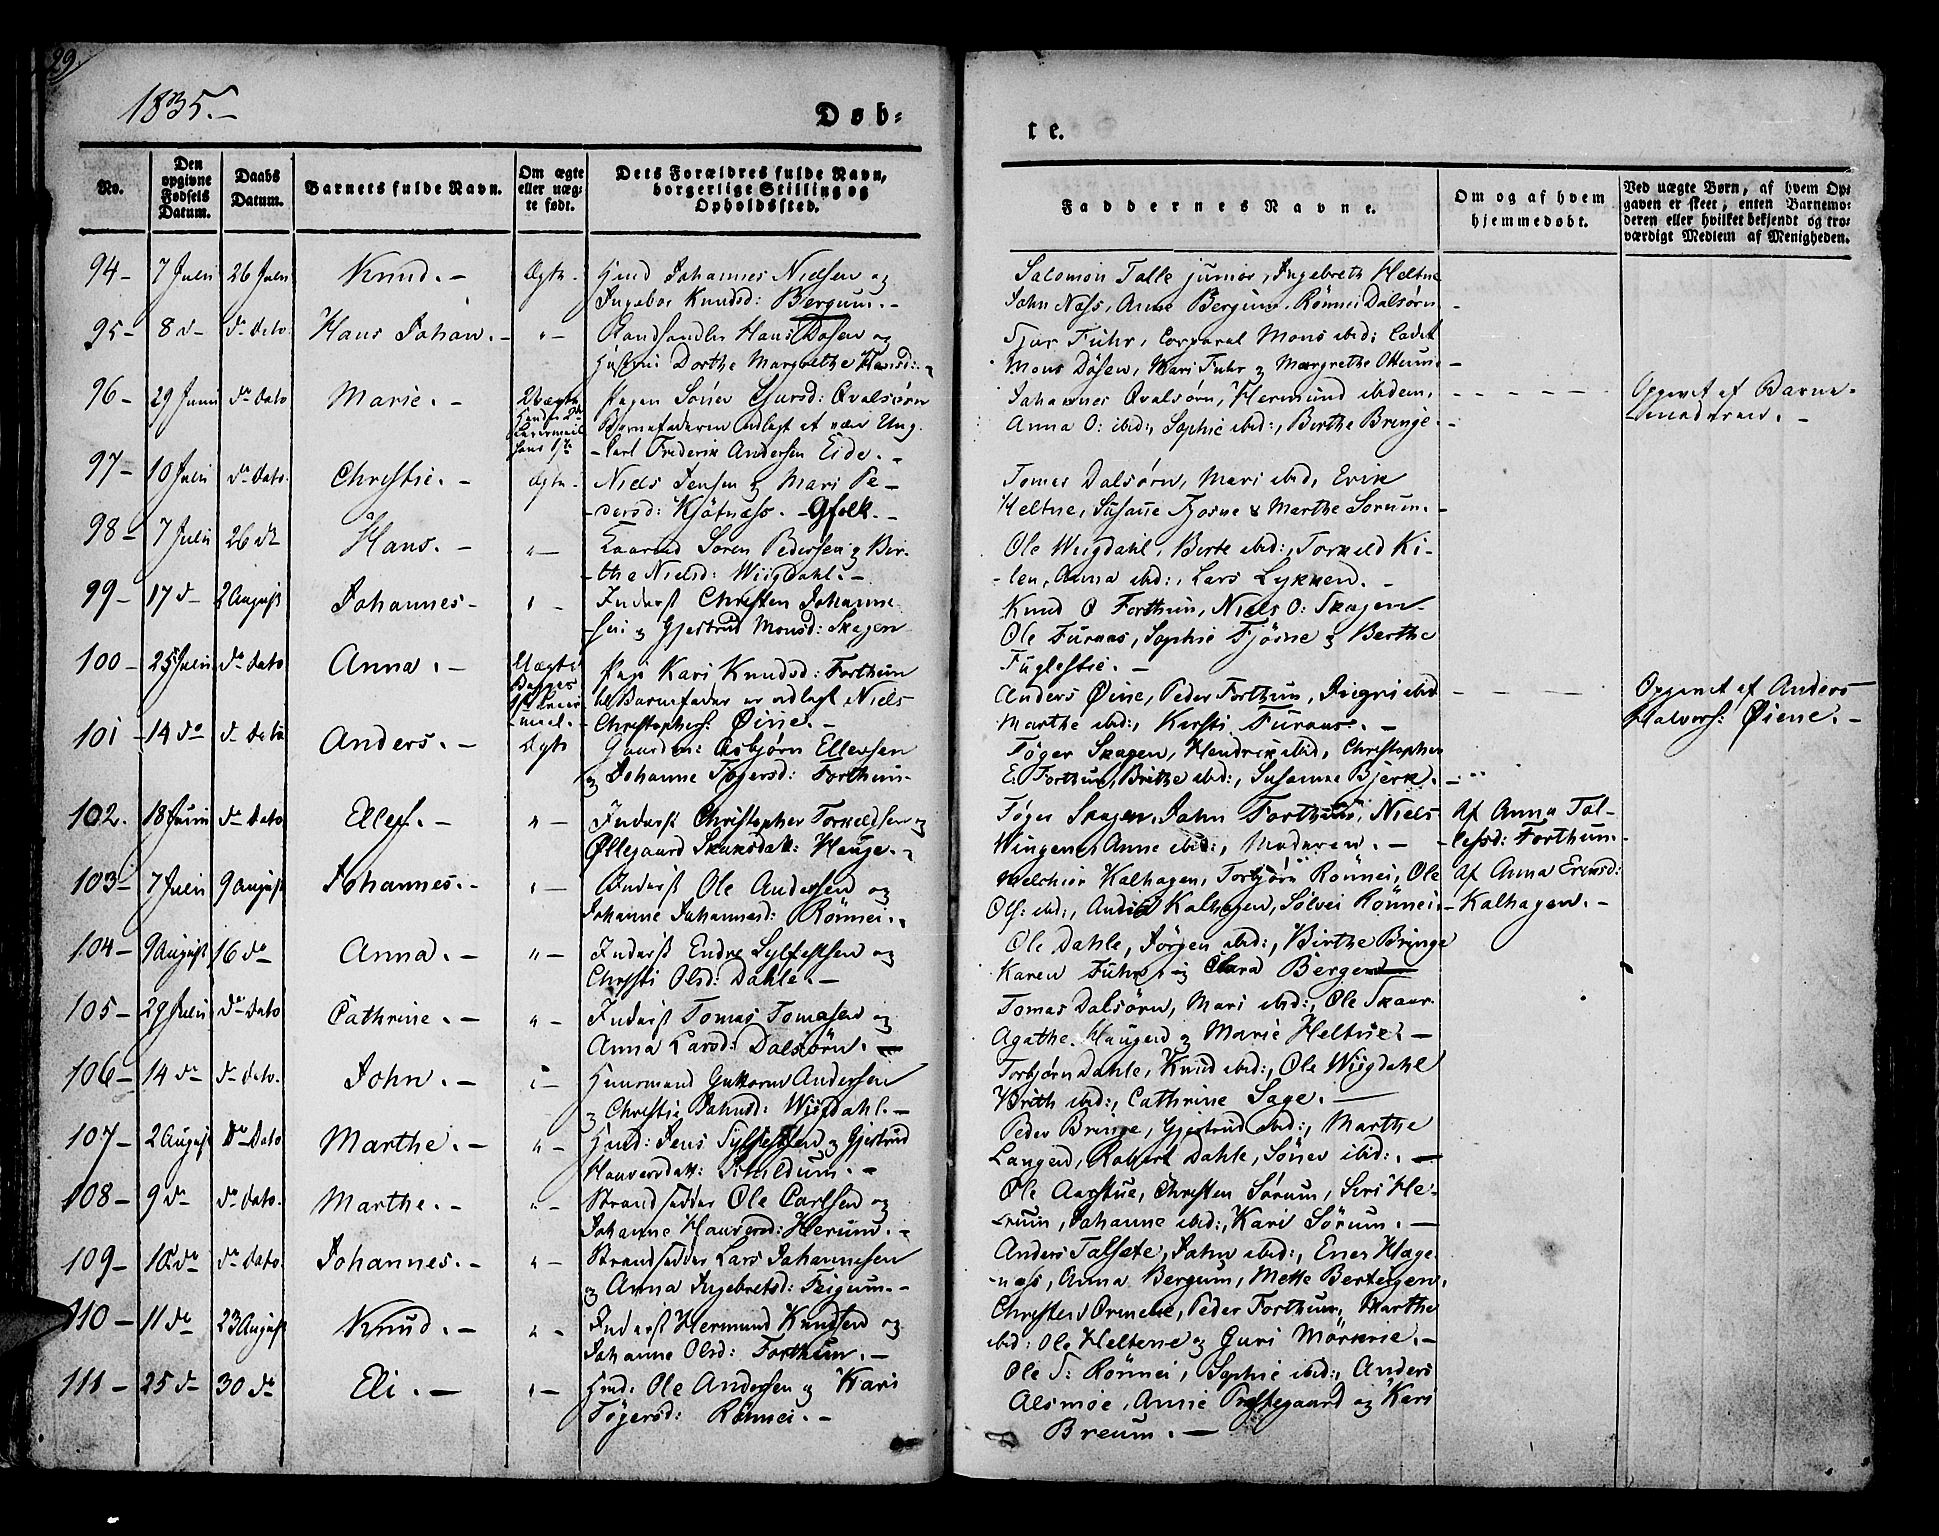 29.
1835.-
Døb=
te.
No.
Den opgivne Fødsels Datum.
Daabs Datum.
Barnets fulde Navn.
Om ægte eller uægte født.
Dets Forældres fulde Navn, borgerlige Stilling og Opholdssted.
Faddernes Navne.
Om og af hvem hjemmedøbt.
Ved uægte Børn, af hvem Opgaven er skeet, enten Barnemoderen eller hvilket bekjendt og troværdigt Medlem af Menigheden.
94- 7 Julii 26 Julii Knud.- Ægte. Hmd Johannes Nielsen og
Ingebor Knudsd: Bergum.-
Salomon Talle junior, Ingebreth Heltne
John Næss, Anna Bergum, Rönnei Dalsørn
95- 8 d- do dato Hans Johan.- "- Hans Dösen og
Dorthe Margrethe Hansd:-
Fuhr, Corporal Mons ibid: Cadet
Mons Dösen, Kari Fuhr & Margrethe Ottum-
96- 29 Junii do dato Marie.- Uægte
Pigen Sönev Qvalsørn
Barnefaderen udlagt at være Ung.
-Carl Frederik Andersen Eide.-
Johannes Qvalsørn, Hermund ibidem,
Anna O: ibid:, Sophie ibid:, Berthe Bringe.-
Opgivet af Barne-
moderen.-
97- 10 Julii do dato. Christie.- Ægte. Niels Jensen & Mari Pe-
-dersd: Kjötnæss. -Gfolk.-
Tomas Dalsørn, Mari ibid, Erik
Heltne, Susanne Fjösne & Marthe Sorum.-
98- 7 Julii 26 do Hans.- "- Sören Pedersen & Bir-
-the Nielsd: Wiigdahl.-
Ole Wiigdahl, Berte ibid:, Torkild Ki-
-len, Anna ibid:, Lars Lykken.-
99- 17 d- 2 August Johannes- "- Inderst Christen Johanne-
-sen & Gjertrud Monsd: Skagen
Knud O Forthun, Niels O: Skagen
Ole Furnæs, Sophie Fjösne & Berthe
Fuglestie.-
100- 25 Julii do dato Anna.- Uægte
Pige Kari Knudsd: Forthun
til Barnefader er udlagt Niels
Christophers: Øine.-
Anders Øine, Peder Forthun, Ingri ibid
Marthe ibid:, Kirsti Furnæs.-
Opgivet af Anders
Halvers: Øiene.-
101- 14 do do dato Anders.- Ægte Gaardm: Asbjørn Ellefsen
& Johanne Tögersd: Forthun-
Töger Skagen, Hendrik ibid, Christopher
E. Forthun, Brithe ibid:, Susanne Bjerk.-
102. 18 Junii do dato Ellef.- "- Inderst Christopher Torkeldsen og
Øllegaard Hauge.-
Töger Skagen, John Forthun, Niels
Wingen, Anne ibid:, Moderen.-
Af Anna Tol-
lefsd: Forthun.-
103- 7 Julii 9 August Johannes.- "- Inderst Ole Andersen og
Johanne Johannesd: Rönnei.-
Melchior Kalhagen, Torbjörn Rönnei, Ole
Ols: ibid:, Kalhagen, Sölvei Rönnei.-
Af Anna Eriksd:
Kalhagen.-
104- 9 August 16 do Anna.- "- Inderst Endre Sylfestsen og
Christi Olsd: Dahle.-
Ole Dahle, Jörgen ibid:, Birthe Bringe
Karen Fuhr, & Clara Bergen
105- 29 Julii do dato Cathrine.- "- Inderst Tomas Tomasen og
Anna Larsd: Dalsörn.-
Tomas Dalsørn, Mari ibid:, Ole Skaar
Agathe Haugen & Marie Heltne.-
106- 14 do do dato. John.- "- Huusmand Guttorm Andersen
& Christie Johnsd: Wiigdahl.-
Torbjørn Dahle, Knud ibid:, Ole Wiigdahl
Brith ibid:, Cathrine Sage.-
107- 2 August do dato Marthe.- "- Hmd: Jens Sylfestsen & Gjertrud
Haaversdatt:
Peder Bringe, Gjertrud ibid:, Marthe
Langen, Robert Dahle, Sönev ibid:.-
108- 9 do do dato. Marthe.- "- Strandsidder Ole Carlsen og
Johanne Haaversd: Herum.-
Ole Aarstue, Christen Sörum, Siri He-
-rum, Johanne ibid:, Kari Sörum.-
109- 10 do do dato. Johannes.- "- Strandsidder Lars Johannesen
& Anna Ingebretsd: Feigum.-
Anders Talsete, John ibid:, Hage-
-næss, Anna Bergum, Mette Bertesgen.
110- 11 do 23 August Knud.- "- Inderst Hermund Knudsen og
Johanne Olsd: Forthun.-
Christen Ormelie, Peder Forthun, Marthe
ibid: Ole Heltene & Guri Mörkrie.-
111- 25 do 30 do Eli.- "- Hmd: Ole Andersen & Kari
Tögersd: Rönnei.-
Ole T: Rönnei, Sophie ibid:, Anders
Alsmoe, Anne Prestegaard og Kari
Breum.-